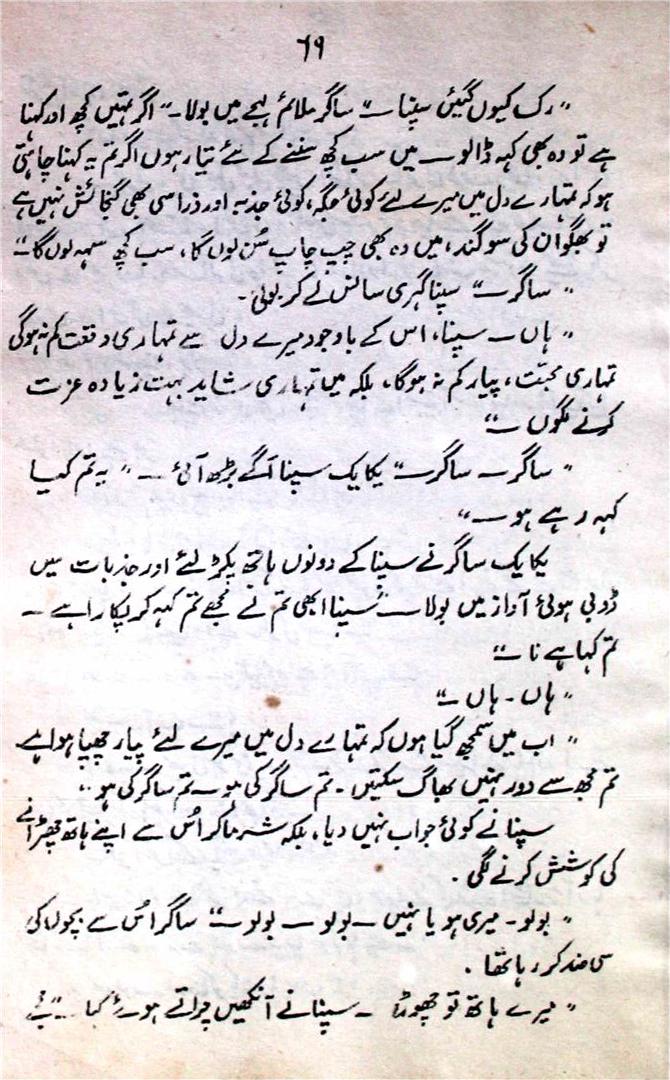 ۶۹
"رک کیوں گئیں سپنا—" ساگر ملائم لہجے میں بولا۔ "اگر تمہیں کچھ اور کہنا
ہے تو وہ بھی کہہ ڈالو— میں سب کچھ سننے کے لئے تیار ہوں اگر تم یہ کہنا چاہتی
ہو کہ تمہارے دل میں میرے لئے کوئی جگہ، کوئی جذبہ اور ذرا سی بھی گنجائش نہیں ہے
تو بھگوان کی سوگند، میں وہ بھی چپ چاپ سُن لوں گا، سب کچھ سہہ لوں گا—"
"ساگر—" سپنا گہری سانس لے کر بولی۔
"ہاں— سپنا، اس کے باوجود میرے دل سے تمہاری وقعت کم نہ ہوگی
تمہاری محبت، پیار کم نہ ہوگا، بلکہ میں تمہاری شاید بہت زیادہ عزت
کرنے لگوں—"
"ساگر— ساگر—" یکایک سپنا آگے بڑھ آئی— "یہ تم کیا
کہہ رہے ہو—"
یکایک ساگر نے سپنا کے دونوں ہاتھ پکڑ لئے اور جذبات میں
ڈوبی ہوئی آواز میں بولا— "سپنا ابھی تم نے مجھے تم کہہ کر پکارا ہے—
تم کہا ہے نا—"
"ہاں۔ ہاں—"
"اب میں سمجھ گیا ہوں کہ تمہارے دل میں میرے لئے پیار چھپا ہوا ہے۔
تم مجھ سے دور نہیں بھاگ سکتیں۔ تم ساگر کی ہو— تم ساگر کی ہو"
سپنا نے کوئی جواب نہیں دیا، بلکہ شرما کر اُس سے اپنے ہاتھ چھڑانے
کی کوشش کرنے لگی۔
"بولو۔ میری ہو یا نہیں— بولو— بولو—" ساگر اُس سے بچوں کی
سی ضد کر رہا تھا۔
"میرے ہاتھ تو چھوڑو— سپنا نے آنکھیں چراتے ہوئے کہا—"